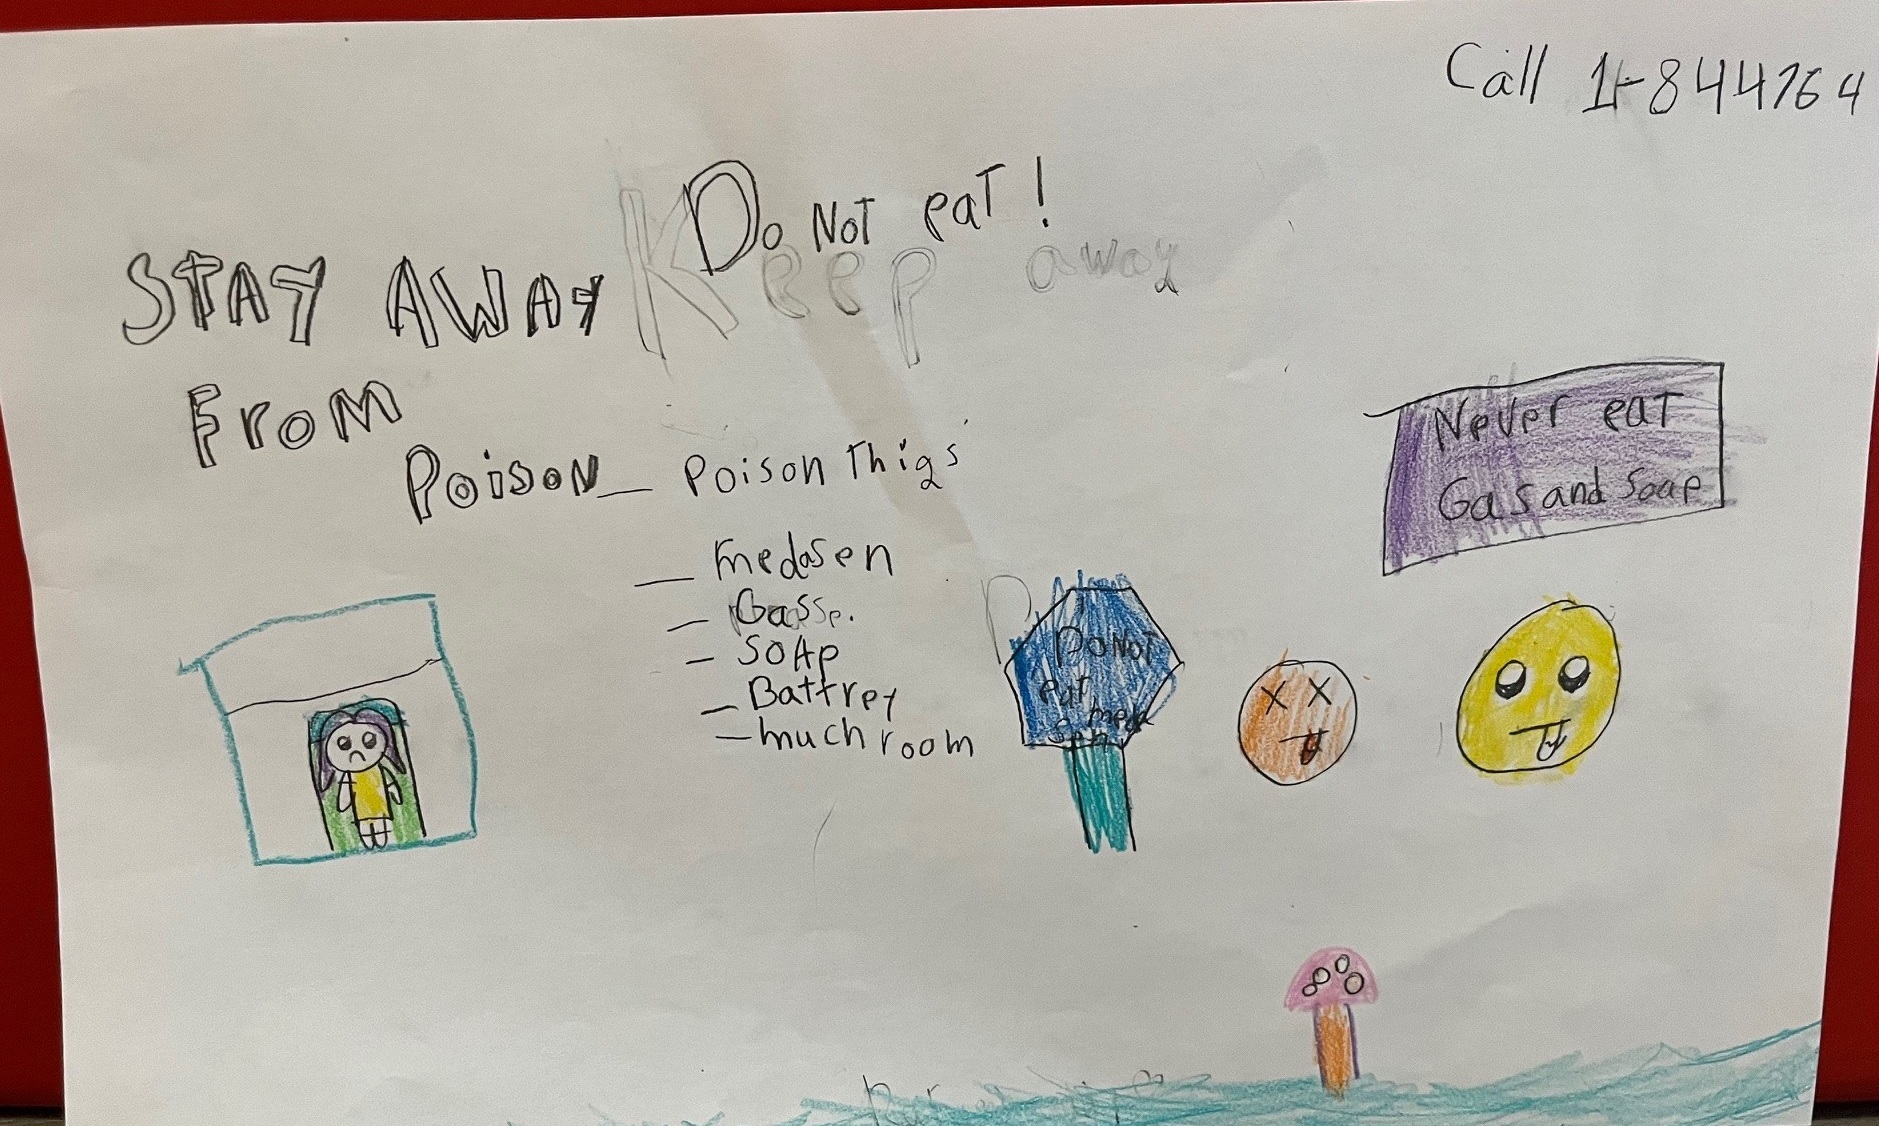 Call 1-844764
Do NoT eaT!
Keep away
STAY AWAY
From
Poison
Poison Thigs
medasen
Gassp.
SOAp
Battrey
much room
Never eaT
Gas and Soap
Do NoT
eat meda
sen